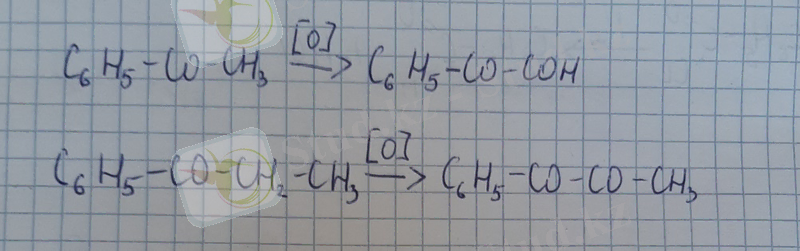 C₆H₅-CO-CH₃ [O]→ C₆H₅-CO-COH
C₆H₅-CO-CH₂-CH₃ [O]→ C₆H₅-CO-CO-CH₃